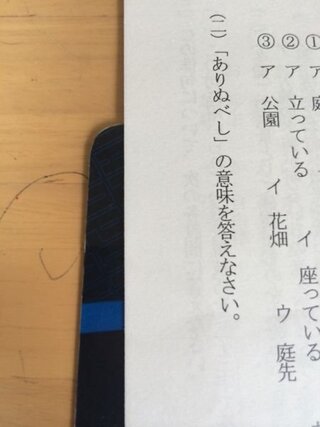 ① ア 庭
② ア 立っている イ 座っている
③ ア 公園 イ 花畑 ウ 庭先
(二)「ありぬべし」の意味を答えなさい。